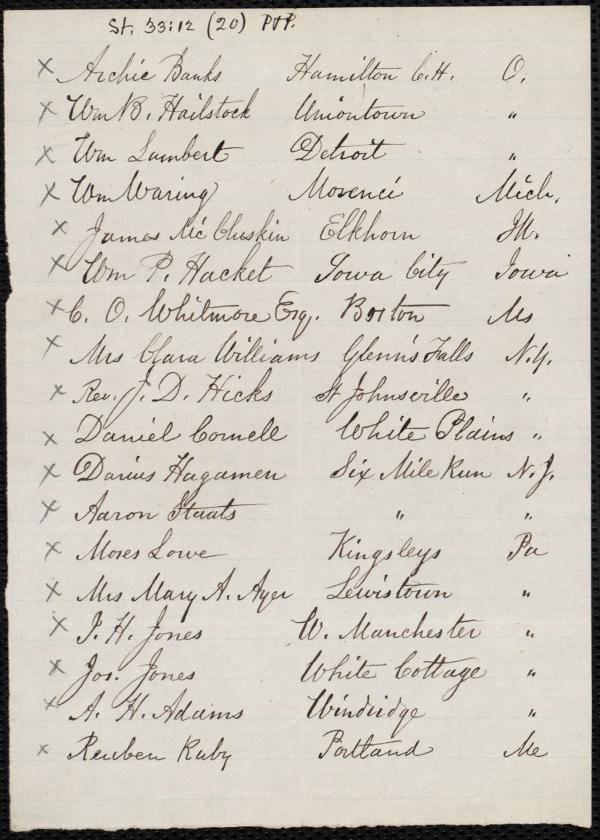 St. 33:12 (20) PVP.
x Archie Banks Hamilton C.H. O.
x Wm B. Hailstock Uniontown "
x Wm Lambert Detroit "
x Wm Waring Morenci Mich.
x James McChuskin Elkhorn Ill.
x Wm P. Hacket Iowa City Iowa
x C. O. Whitmore Esq. Boston Ms
x Mrs Clara Williams Glenn's Falls N.Y.
x Rev. J. D. Hicks St Johnsville "
x Daniel Cornell White Plains "
x Darius Hagamen Six Mile Run N.J.
x Aaron Staats " "
x Moses Lowe Kingsleys Pa
x Mrs Mary A. Ayer Lewistown "
x P. H. Jones W. Manchester "
x Jos. Jones White Cottage "
x A. H. Adams Windridge "
x Reuben Ruby Portland Me